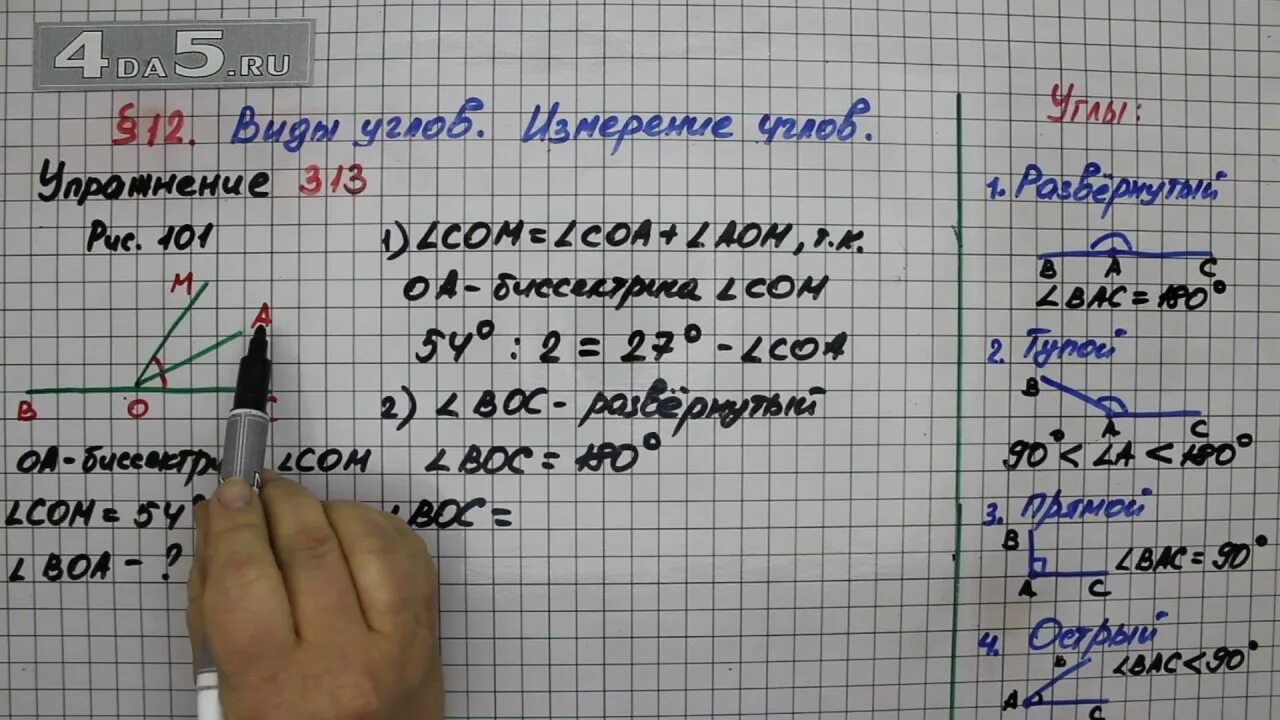 4DA5.RU
§12. Виды углов. Измерение углов.
Упражнение 313
Рис. 101
M
A
B
O
C
OA-биссектри ∠COM
∠COM = 54°
∠BOA - ?
1) ∠COM = ∠COA + ∠AOM, т.к.
OA-биссектриса ∠COM
54° : 2 = 27° - ∠COA
2) ∠BOC - развёрнутый
∠BOC = 180°
∠BOC =
Углы:
1. Развёрнутый
B A C
∠BAC = 180°
2. Тупой
B
A C
90° < ∠A < 180°
3. Прямой
B
∠BAC = 90°
A C
4. Острый
B
∠BAC < 90°
A C